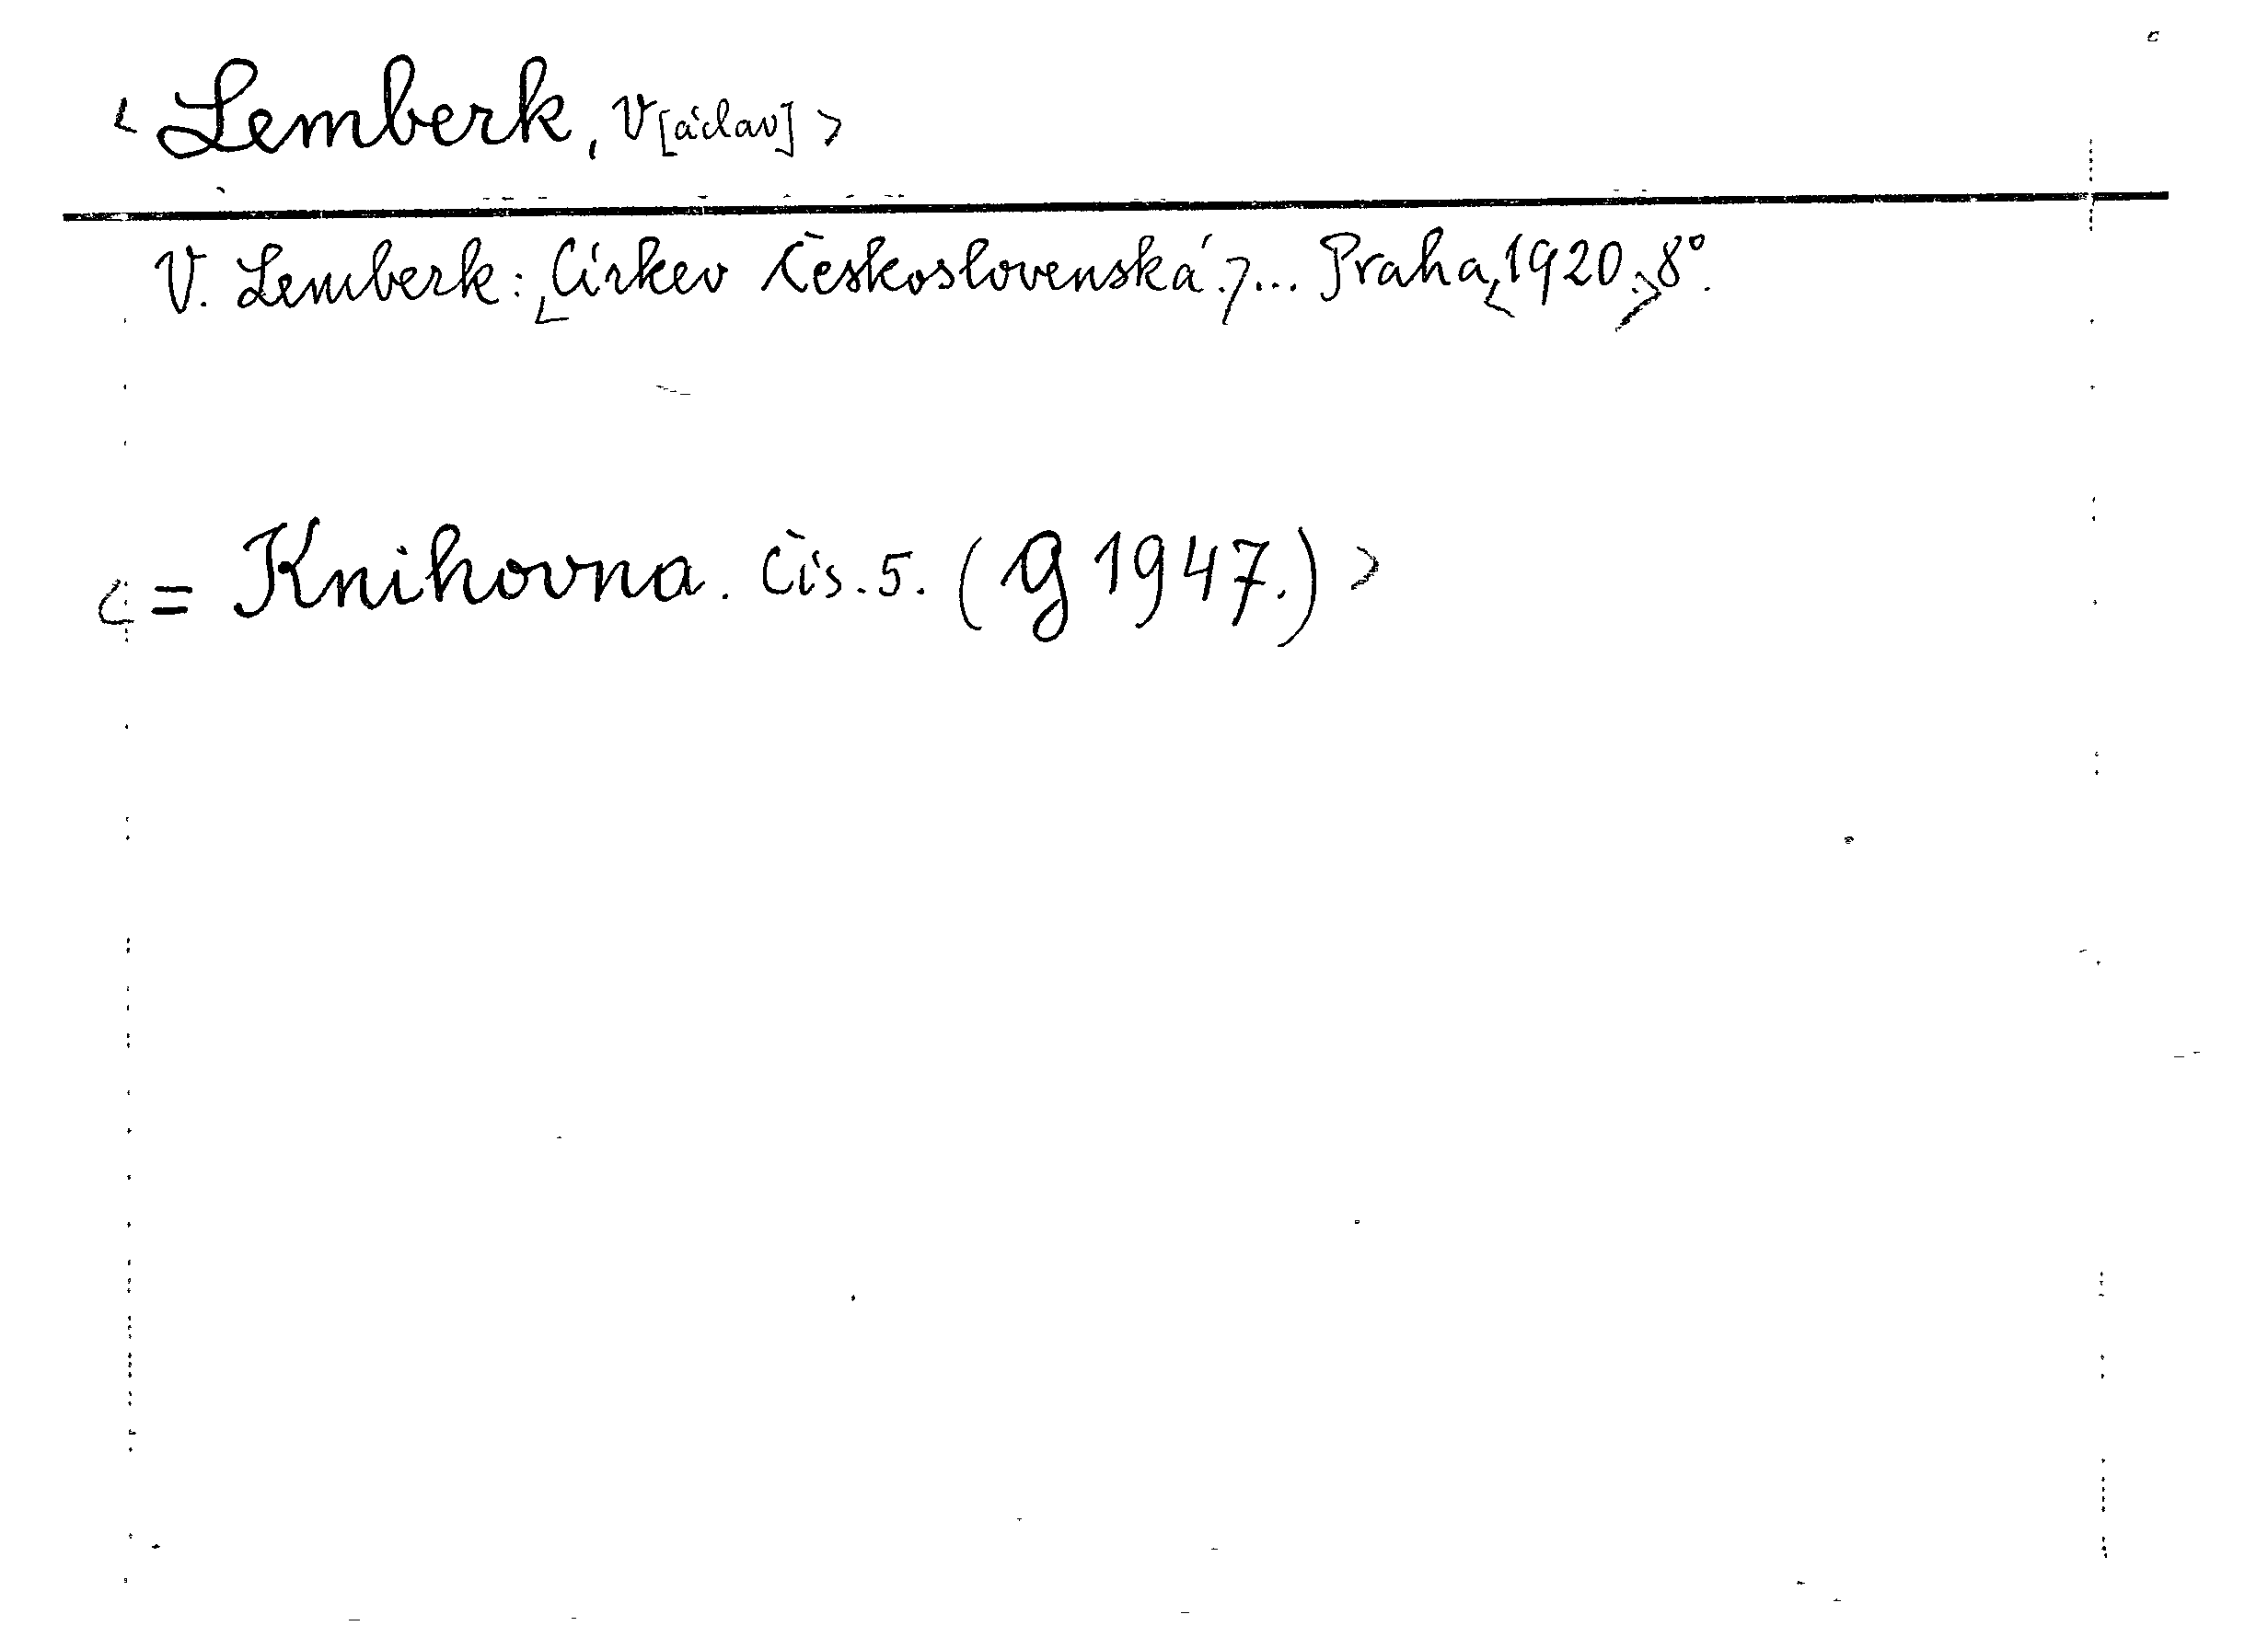 < Lemberk, V[áclav] >
V. Lemberk: <Církev Československá.>... Praha, <1920.> 8°.
< = Knihovna. Čís. 5. (G 1947.) >